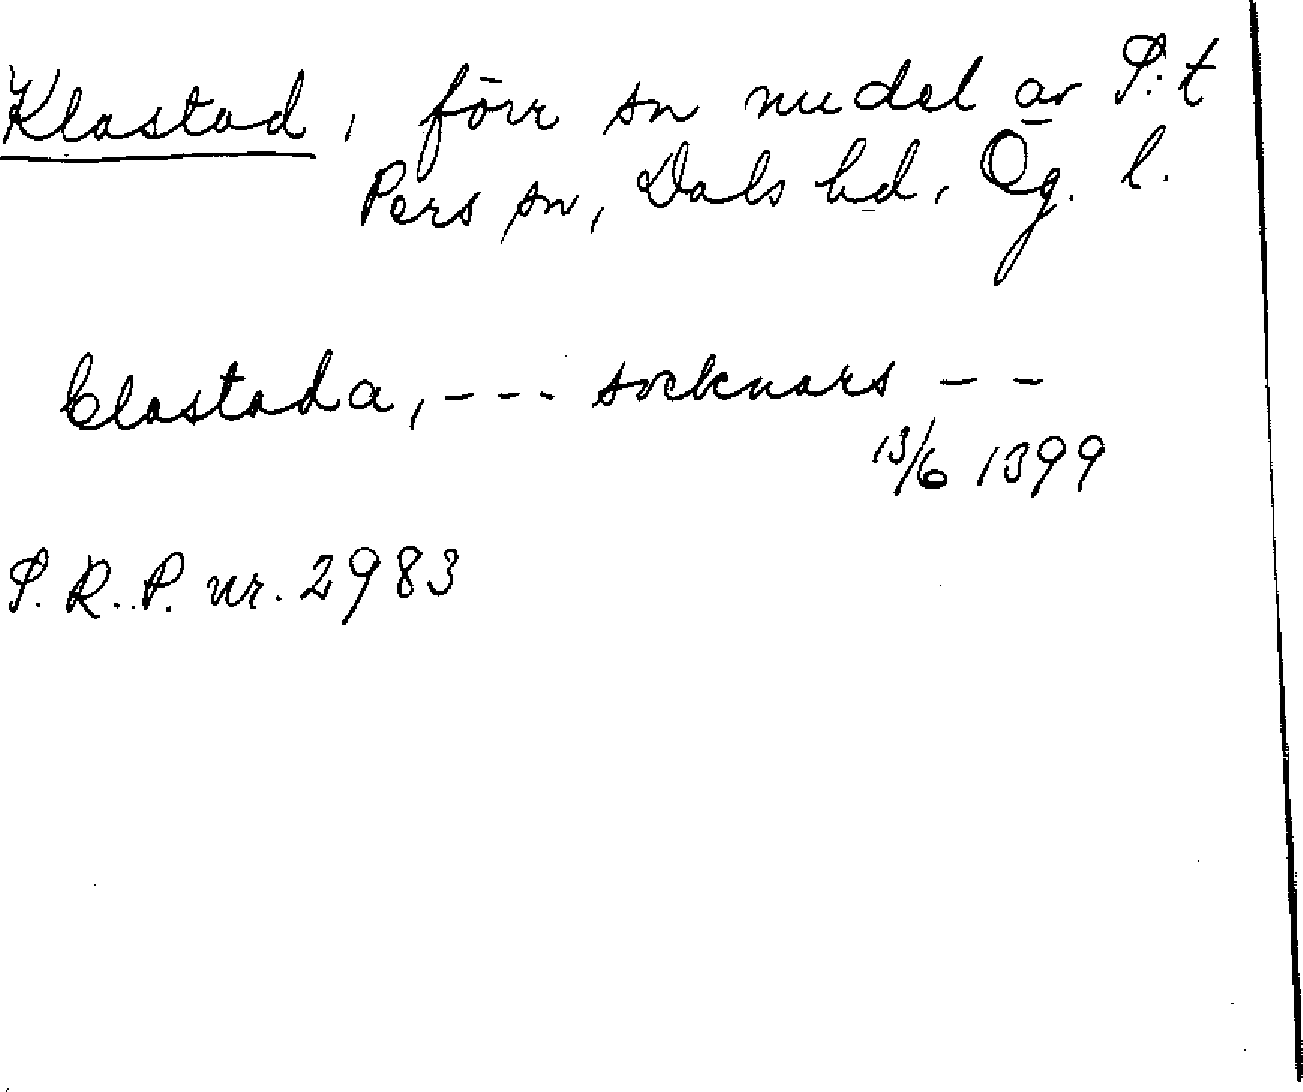 Klastad, förr sn nu del av S:t
Pers sn, Dals hd, Ög. l.
Clastada, --- socknars --
13/6 1399
S.R.P. nr. 2983